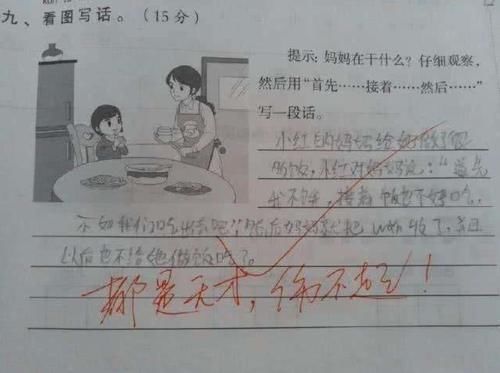 九、看图写话。(15分)
提示：妈妈在干什么？仔细观察，
然后用“首先……接着……然后……”
写一段话。
小红的妈妈给她做好很
多饭，小红对妈妈说：“首先
我不饿，接着饭也不好吃，
不如我们吃出去吧”然后妈妈就把收了，并且
以后也不给她做饭吃了。
都是天才，伤不起！